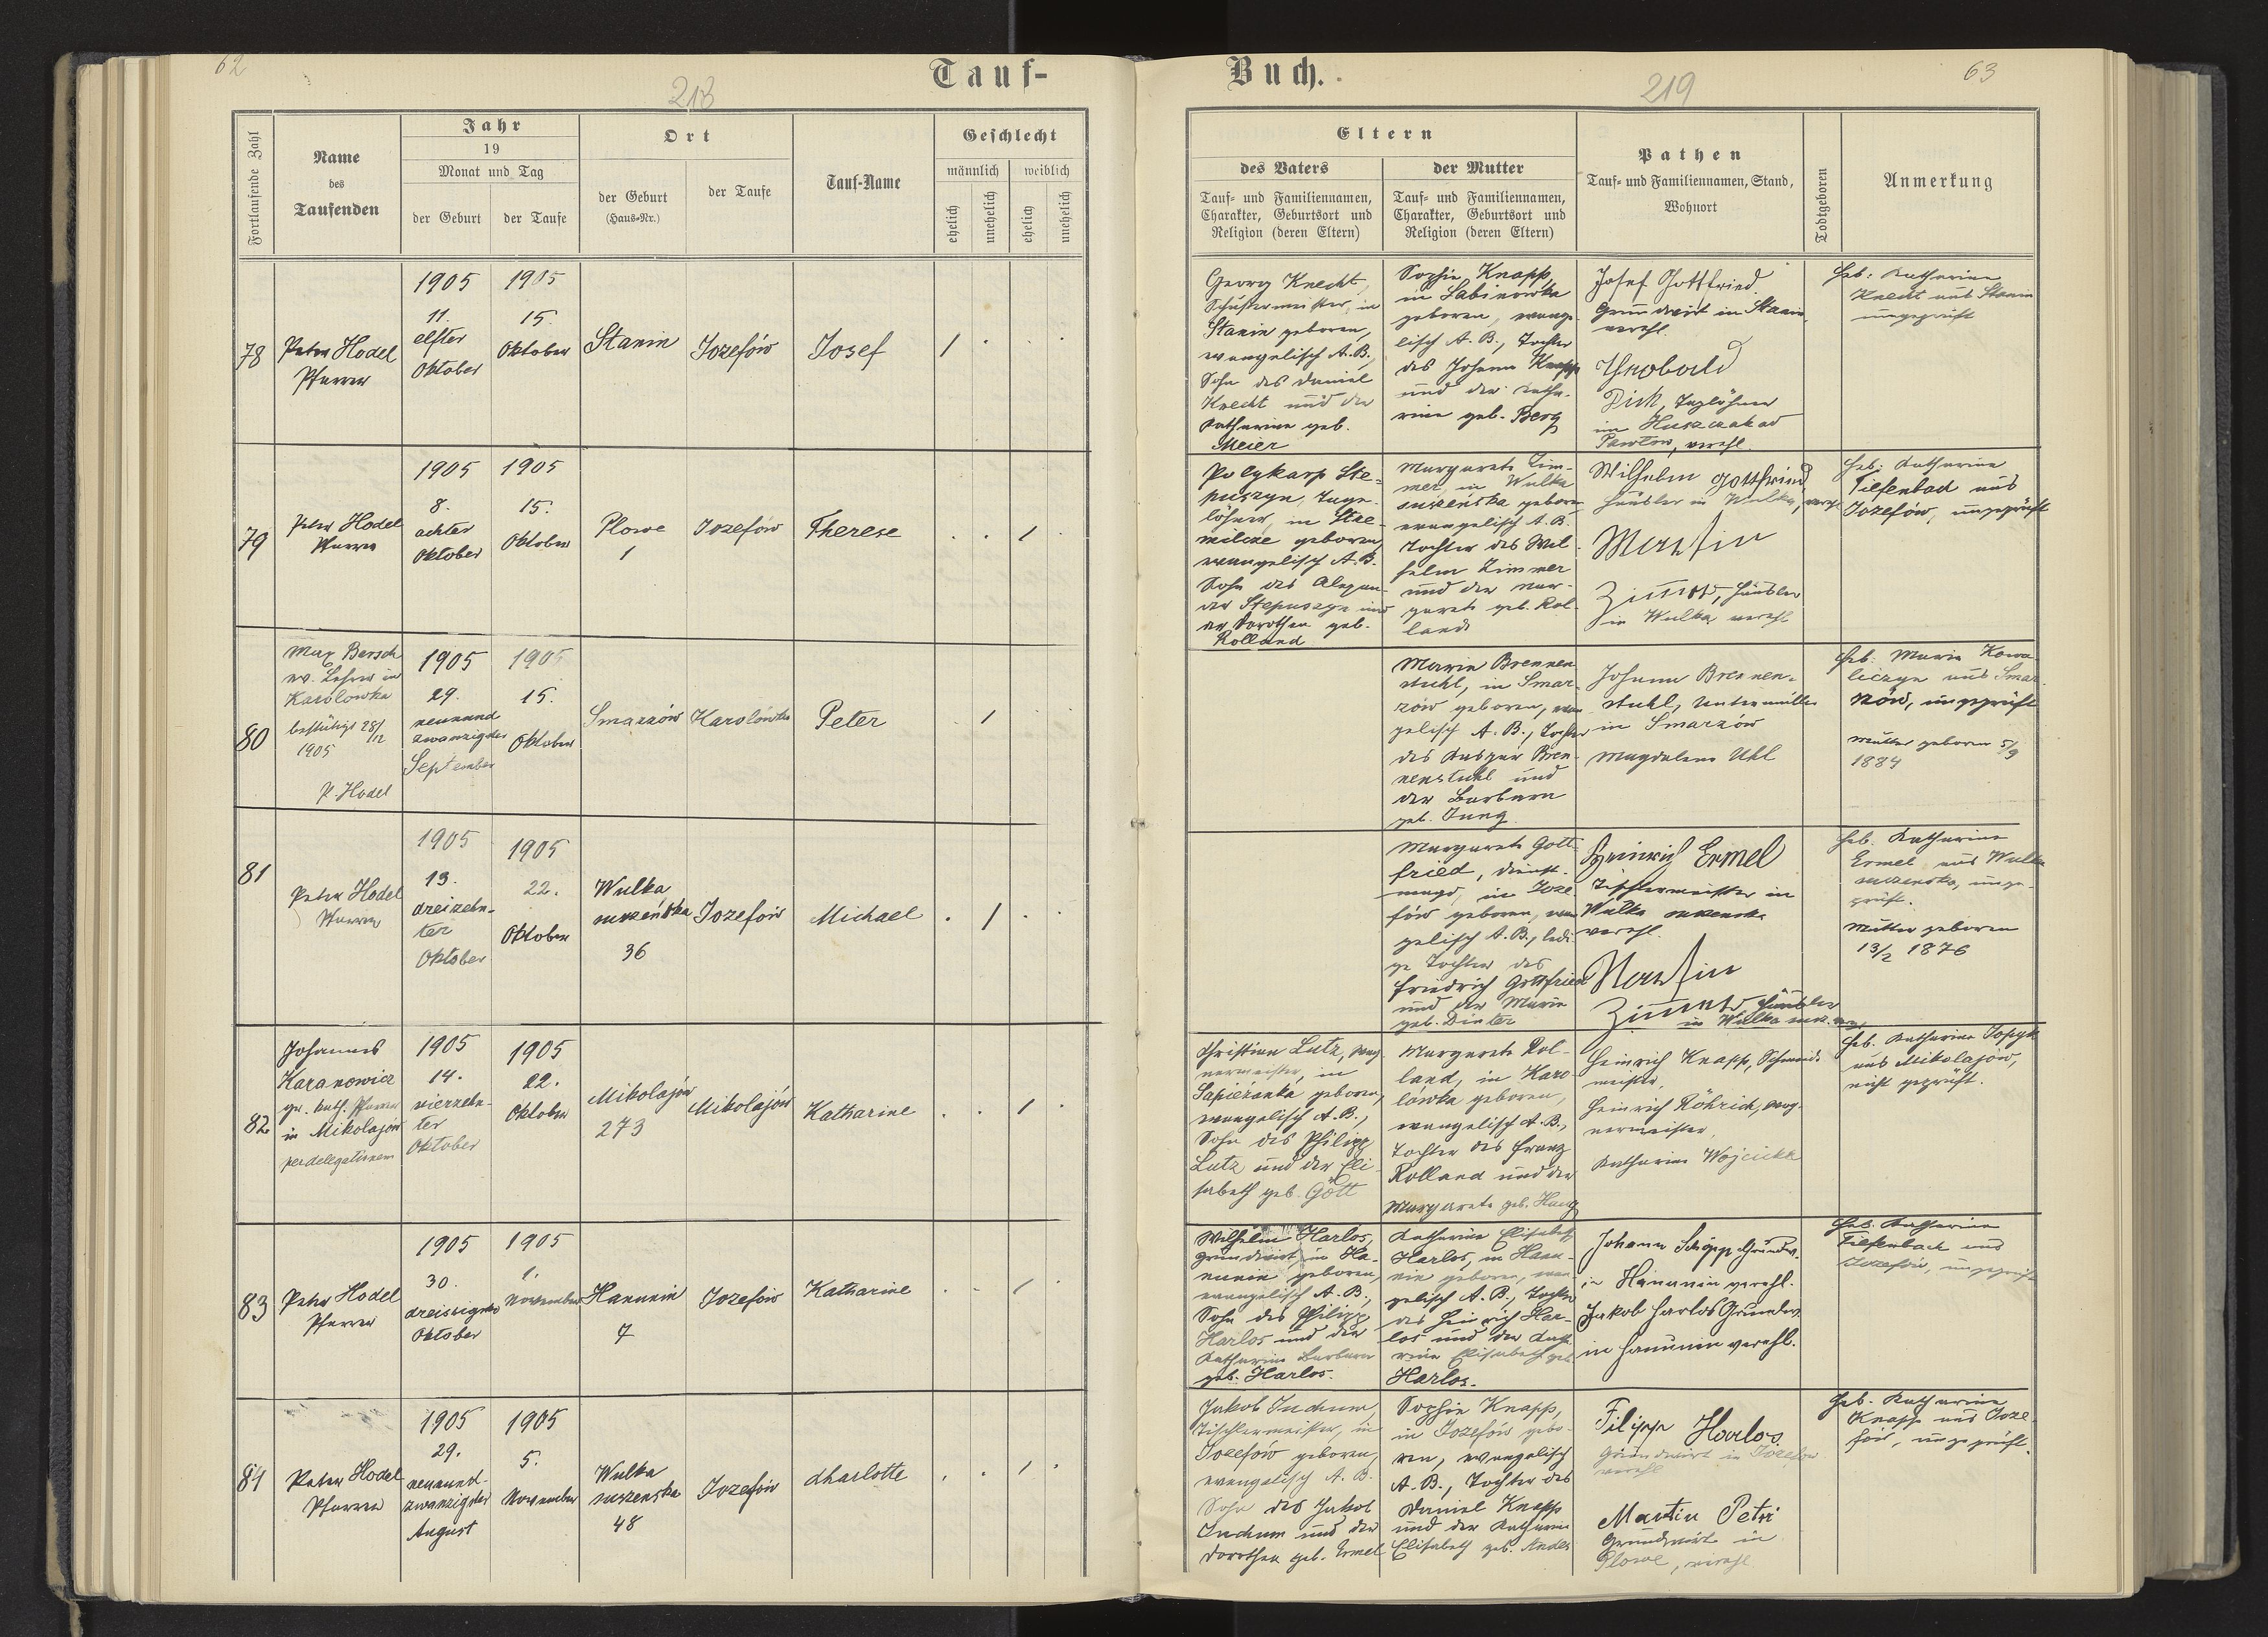 62
218
Tauf-
Fortlaufende Zahl
Name
des
Taufenden
Jahr
19
Monat und Tag
der Geburt
der Taufe
Ort
der Geburt
(Haus-Nr.)
der Taufe
Tauf-Name
Geschlecht
männlich
weiblich
ehelich
unehelich
ehelich
unehelich
78
Peter Hodel
Pfarrer
1905
11.
elfter
Oktober
1905
15.
Oktober
Stanin
Jozefów
Josef
1
79
Peter Hodel
Pfarrer
1905
8.
achter
Oktober
1905
15.
Oktober
Plowe
1
Jozefów
Therese
1
80
Max Bersch
ev. Lehrer in
Karolowka
bestätigt 28/12
1905
P. Hodel
1905
29.
neunund
zwanzigster
September
1905
15.
Oktober
Smarzów
Karolówka
Peter
1
81
Peter Hodel
Pfarrer
1905
13.
dreizehn-
ter
Oktober
1905
22.
Oktober
Wulka
suszeńska
36
Jozefów
Michael
1
82
Johannes
Karanowicz
gr. kath. Pfarrer
in Mikolajów
per delegationem
1905
14.
vierzehn-
ter
Oktober
1905
22.
Oktober
Mikolajów
273
Mikolajów
Katharine
1
83
Peter Hodel
Pfarrer
1905
30.
dreissigster
Oktober
1905
1.
November
Hanunin
7
Jozefów
Katharine
1
84
Peter Hodel
Pfarrer
1905
29.
neunund-
zwanzigster
August
1905
5.
November
Wulka
suszenska
48
Jozefów
Charlotte
1
Buch.
219
63
Eltern
des Vaters
Tauf- und Familiennamen,
Charakter, Geburtsort und
Religion (deren Eltern)
der Mutter
Tauf- und Familiennamen,
Charakter, Geburtsort und
Religion (deren Eltern)
Pathen
Tauf- und Familiennamen, Stand,
Wohnort
Todtgeboren
Anmerkung
Georg Knecht,
Schustermeister, in
Stanin geboren,
evangelisch A. B.,
Sohn des Daniel
Knecht und der
Katharine geb.
Meier
Sophie Knapp,
in Sabinowka
geboren, evange-
lisch A. B., Tochter
des Johann Knapp
und der Katha-
rine geb. Berg
Josef Gottfried
Grundwirt in Stanin
verehl.
Theobald
Dick, Taglöhner
in
verehl.
Heb. Katharine
Knecht aus Stanin
ungeprüft
Polykarp Ste-
puszyn, Tage-
löhner, in Stre-
milcze geboren,
evangelisch A. B.
Sohn des Alexan-
der Stepuszyn und
der Dorothea geb.
Rolland
Margarete Zim-
mer, in Wulka
suszeńska geboren
evangelisch A. B.
Tochter des Wil-
helm Zimmer
und der Mar-
garete geb. Rol-
land
Wilhelm Gottfried,
Häusler in Wulka, verehl
Martin
Zimmer, Häusler
in Wulka verehl
Heb. Katharine
Tiefenbach aus
Jozefów, ungeprüft
Marie Brennen
stuhl, in Smar-
zów geboren, evan
gelisch A. B., Tochter
des Kaspar Bren-
nenstuhl und
der Barbara
geb. Jung.
Johann Brennen-
stuhl, Untermüller
in Smarzów
Magdalena Uhl
Heb. Marie Kowa-
liczyn aus Smar-
zów, ungeprüft
Mutter geboren 5/9
1884
Margarete Gott
fried, Dienst-
magd, in Joze
fów geboren, evan
gelisch A. B., ledi-
ge Tochter des
Friedrich Gottfried
und der Marie
geb. Dinter
Heinrich Ermel
Tischlermeister in
Wulka suszenska
verehl.
Martin
Zimmer Häusler
in Wulka susz.
Heb. Katharine
Ermel aus Wulka
suszenska, unge-
prüft.
Mutter geboren
13/2 1876
Christian Lutz, Wag
nermeister, in
Sapieżanka geboren,
evangelisch A. B.,
Sohn des Philipp
Lutz und der Eli-
sabeth geb. Gött
Margarete Rol-
land, in Karo-
lówka geboren,
evangelisch A. B.,
Tochter des Franz
Rolland und der
Margarete geb. Haug
Heinrich Knapp, Schmiede
meister,
Heinrich Röhrich, Wag-
nermeister,
Katharine Wojcicka
Heb. Katharine Popyk
aus Mikolajów,
nicht geprüft.
Wilhelm Harlos,
Grundwirt, in Ha-
nunin geboren,
evangelisch A. B.,
Sohn des Philipp
Harlos und der
Katharine Barbara
geb. Harlos.
Katharine Elisabeth
Harlos, in Hanu-
nin geboren, evan-
gelisch A. B., Tochter
des Heinrich Har-
los und der Katha-
rine Elisabeth geb.
Harlos.
Johann Schöpp Grundw.
in Hanunin verehl.
Jakob Harlos Grundw.
in Hanunin verehl.
Heb. Katharine
Tiefenbach aus
Jozefów, ungeprüft
Jakob Indum,
Tischlermeister, in
Jozefów geboren,
evangelisch A. B.
Sohn des Jakob
Indum und der
Dorothea geb. Ermel
Sophie Knapp,
in Jozefów gebo-
ren, evangelisch
A. B., Tochter des
Daniel Knapp
und der Katharine
Elisabeth geb. Andes
Filipp Harlos
Grundwirt in Jozefow
verehl
Martin Petri
Grundwirt in
Plowe, verehl
Heb. Katharine
Knapp aus Joze-
fów, ungeprüft.